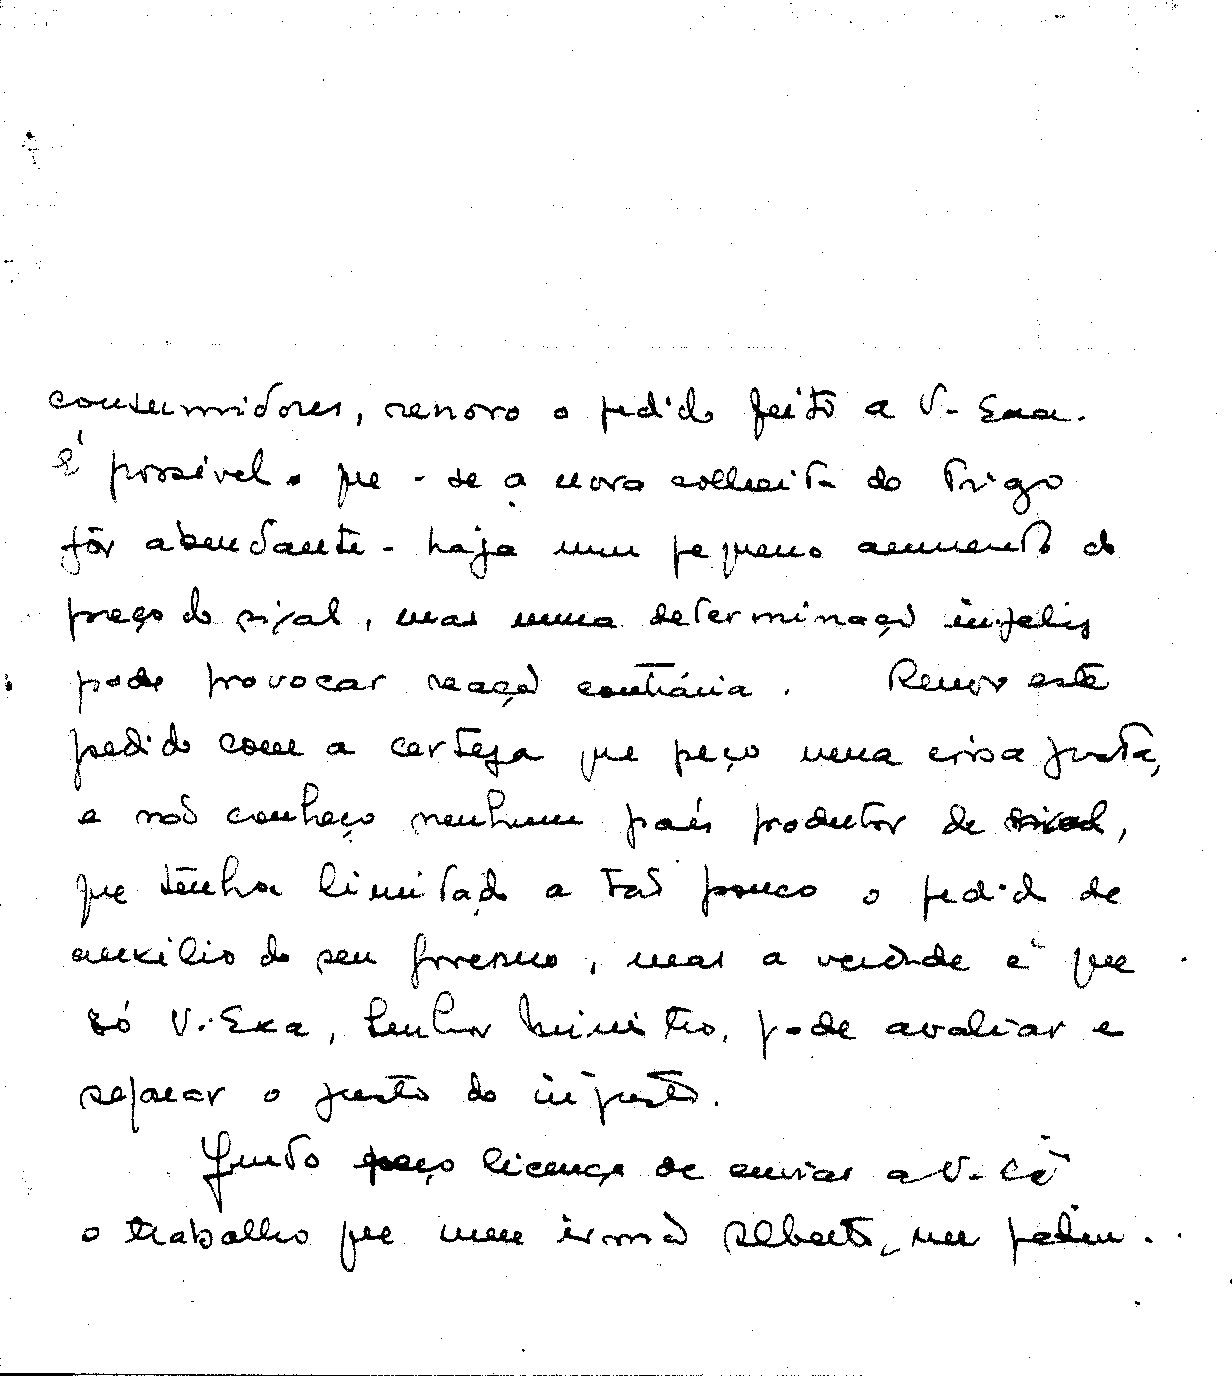 consumidores, renovo o pedido feito a V. Exa.
É possível que - se a nova colheita do trigo
fôr abundante - haja um pequeno aumento do
preço do sisal, mas uma determinação infeliz
pode provocar reação contrária. Renovo este
pedido com a certeza que peço uma coisa justa,
e não conheço nenhum país produtor de sisal,
que tenha limitado a tão pouco o pedido de
auxílio do seu governo, mas a verdade é que
só V. Exa, Senhor Ministro, pode avaliar e
separar o justo do injusto.
Junto peço licença de enviar a V. Eª
o trabalho que meu irmão Alberto, me pediu.